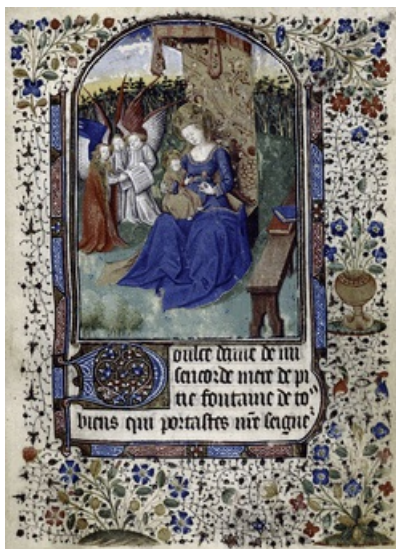 Doulce dame de mi
sericorde mere de pi
tie fontaine de to9
biens qui portastes nr̃e seigne2